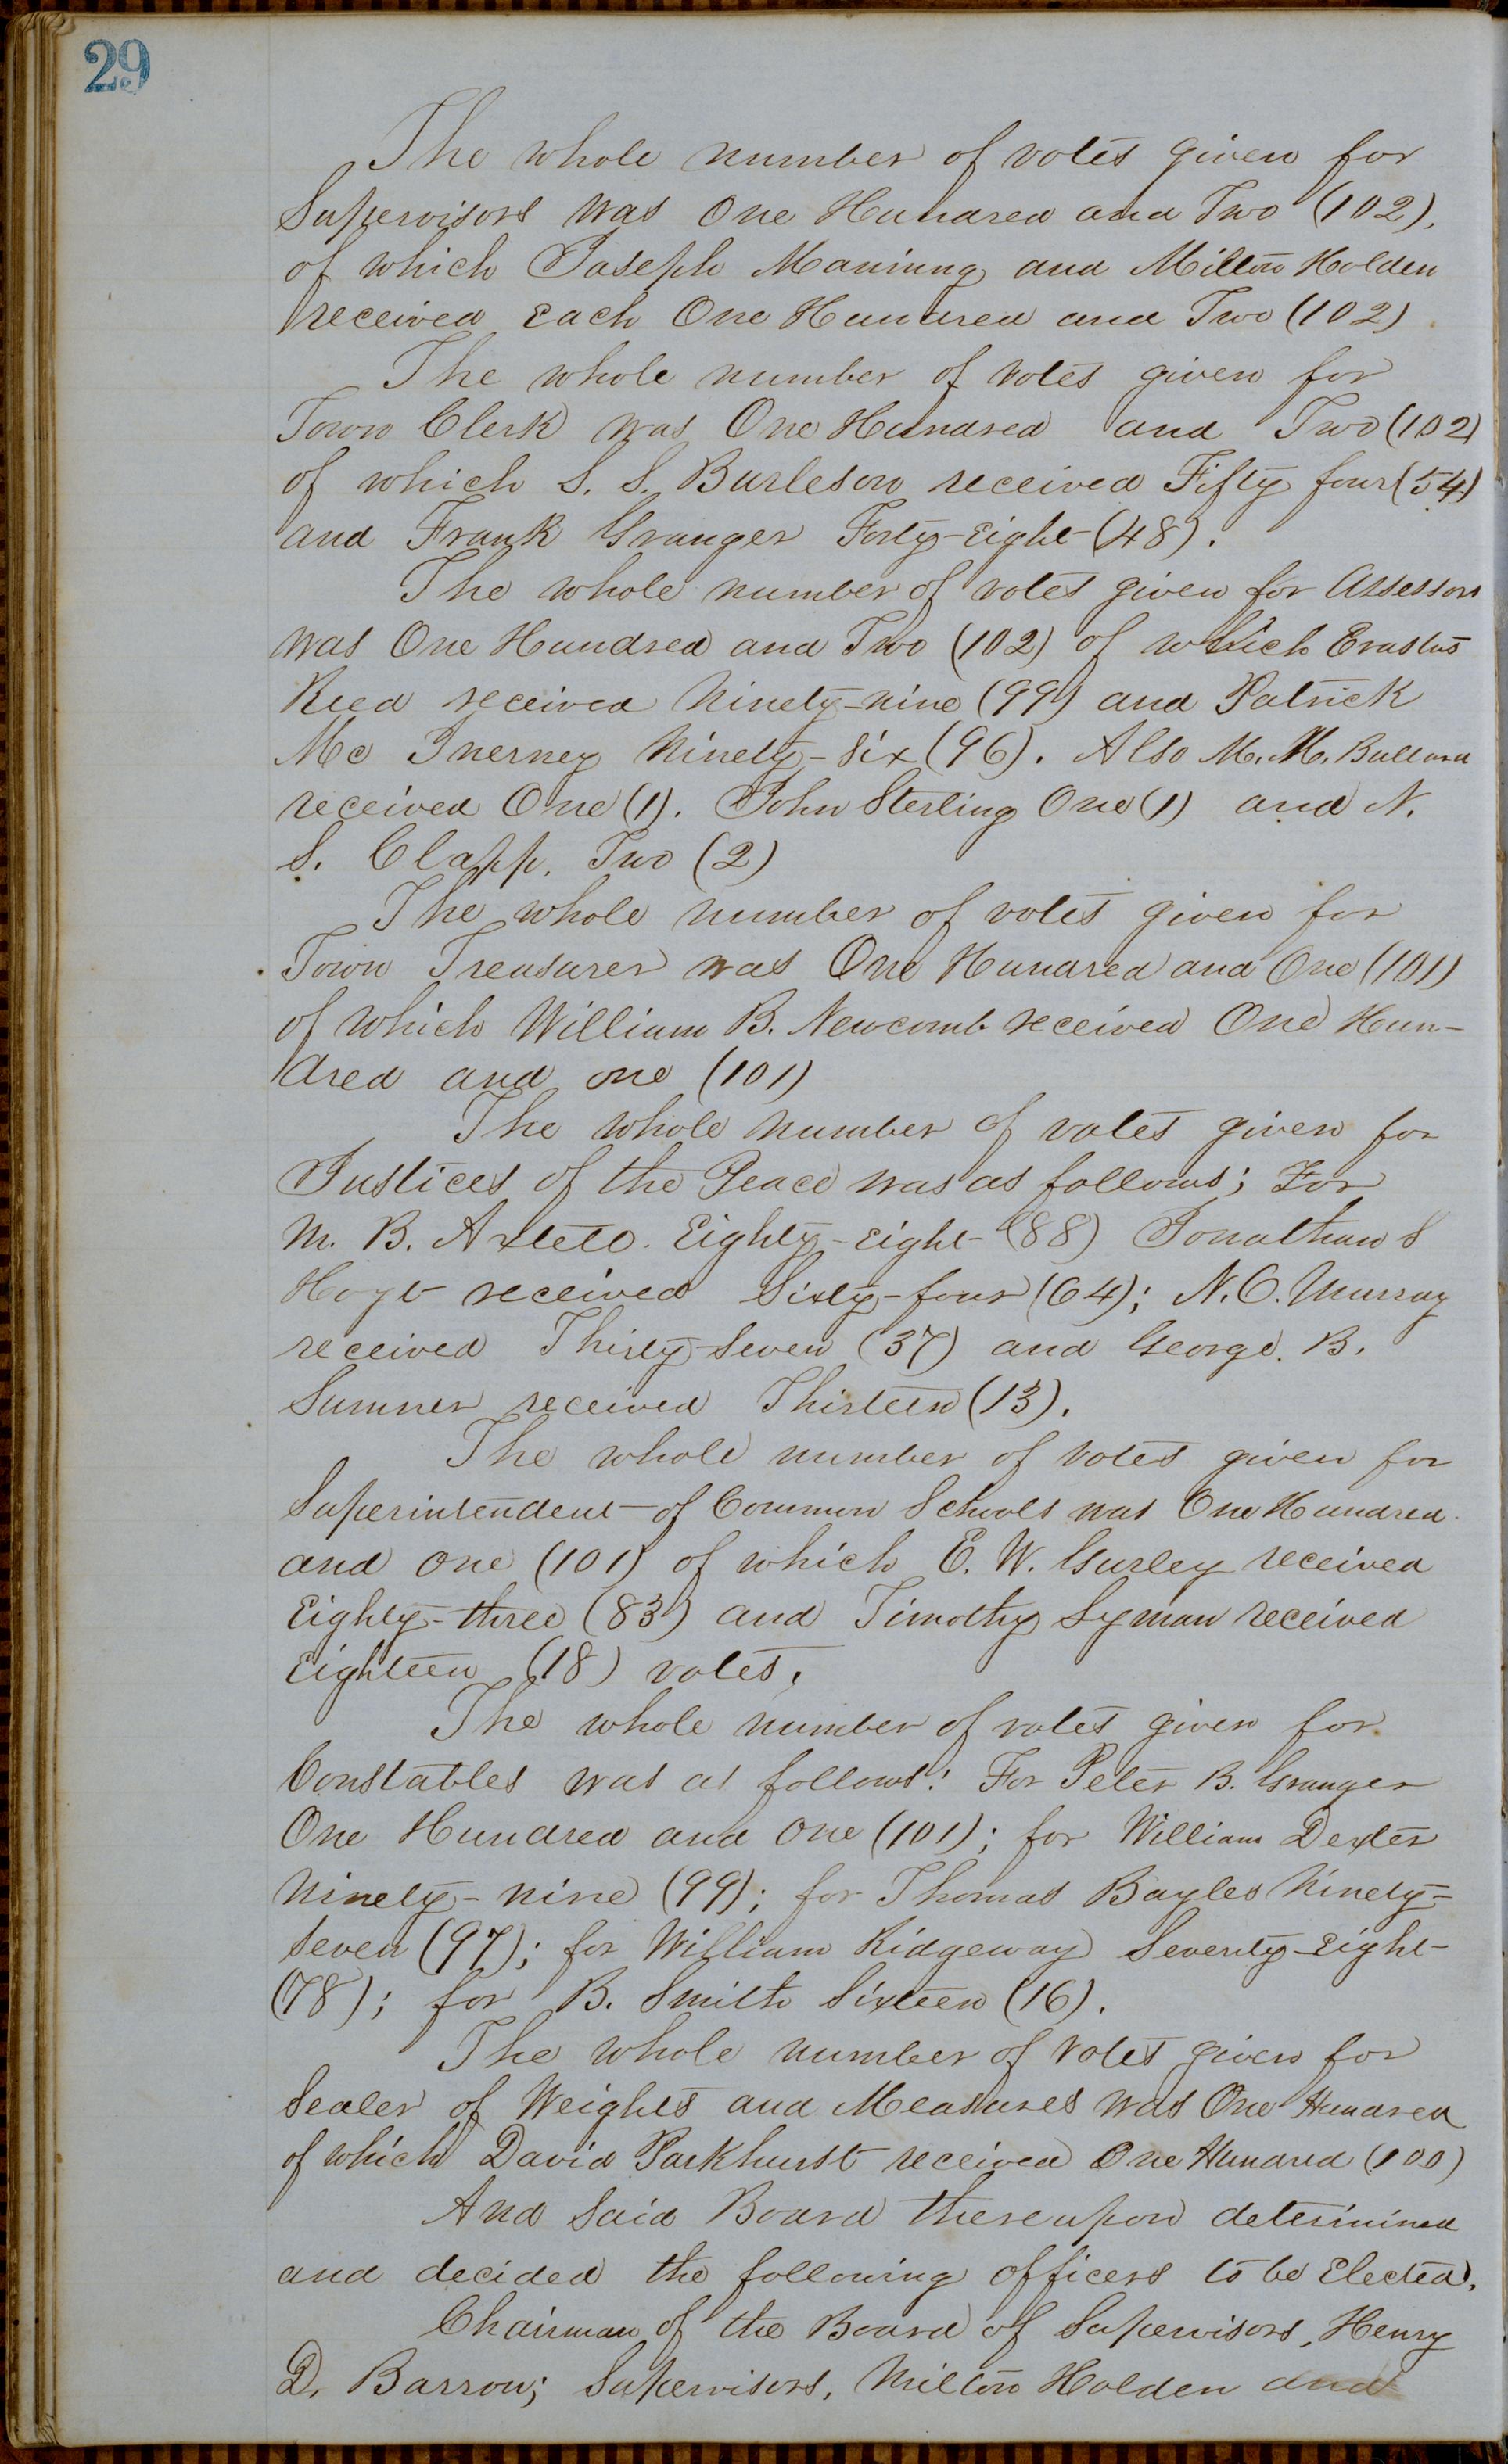 29
The whole number of votes given for
Supervisors was One Hundred and Two (102),
of which Joseph Manning and Milton Holden
received each One Hundred and Two (102)
The whole number of votes given for
Town Clerk was One Hundred and Two (102)
of which S. S. Burleson received Fifty four (54)
and Frank Granger Forty-Eight (48).
The whole number of votes given for Assessors
was One Hundred and Two (102) of which Erastus
Reed received Ninety-nine (99) and Patrick
Mc Inerney Ninety-Six (96). Also M. M. Bullard
received One (1). John Sterling One (1) and N.
S. Clapp. Two (2)
The whole number of votes given for
Town Treasurer was One Hundred and One (101)
of which William B. Newcomb received One Hun-
dred and one (101)
The whole number of votes given for
Justices of the Peace was as follows; For
M. B. Axtell. Eighty-eight (88) Jonathan S
Hoyt received Sixty-four (64); N. C. Murray
received Thirty-Seven (37) and George. B.
Sumner received Thirteen (13).
The whole number of votes given for
Superintendent of Common Schools was One Hundred
and one (101) of which E. W. Gurley received
Eighty-three (83) and Timothy Lyman received
Eighteen (18) votes.
The whole number of votes given for
Constables was as follows: For Peter B. Granger
One Hundred and One (101); for William Dexter
Ninety-nine (99); for Thomas Bayles Ninety-
Seven (97); for William Ridgeway Seventy-Eight
(78); for B. Smith Sixteen (16).
The whole number of votes given for
Sealer of Weights and Measures was One Hundred
of which David Parkhurst received One Hundred (100)
And Said Board thereupon determined
and decided the following officers to be Elected.
Chairman of the Board of Supervisors, Henry
D. Barron; Supervisors, Milton Holden and